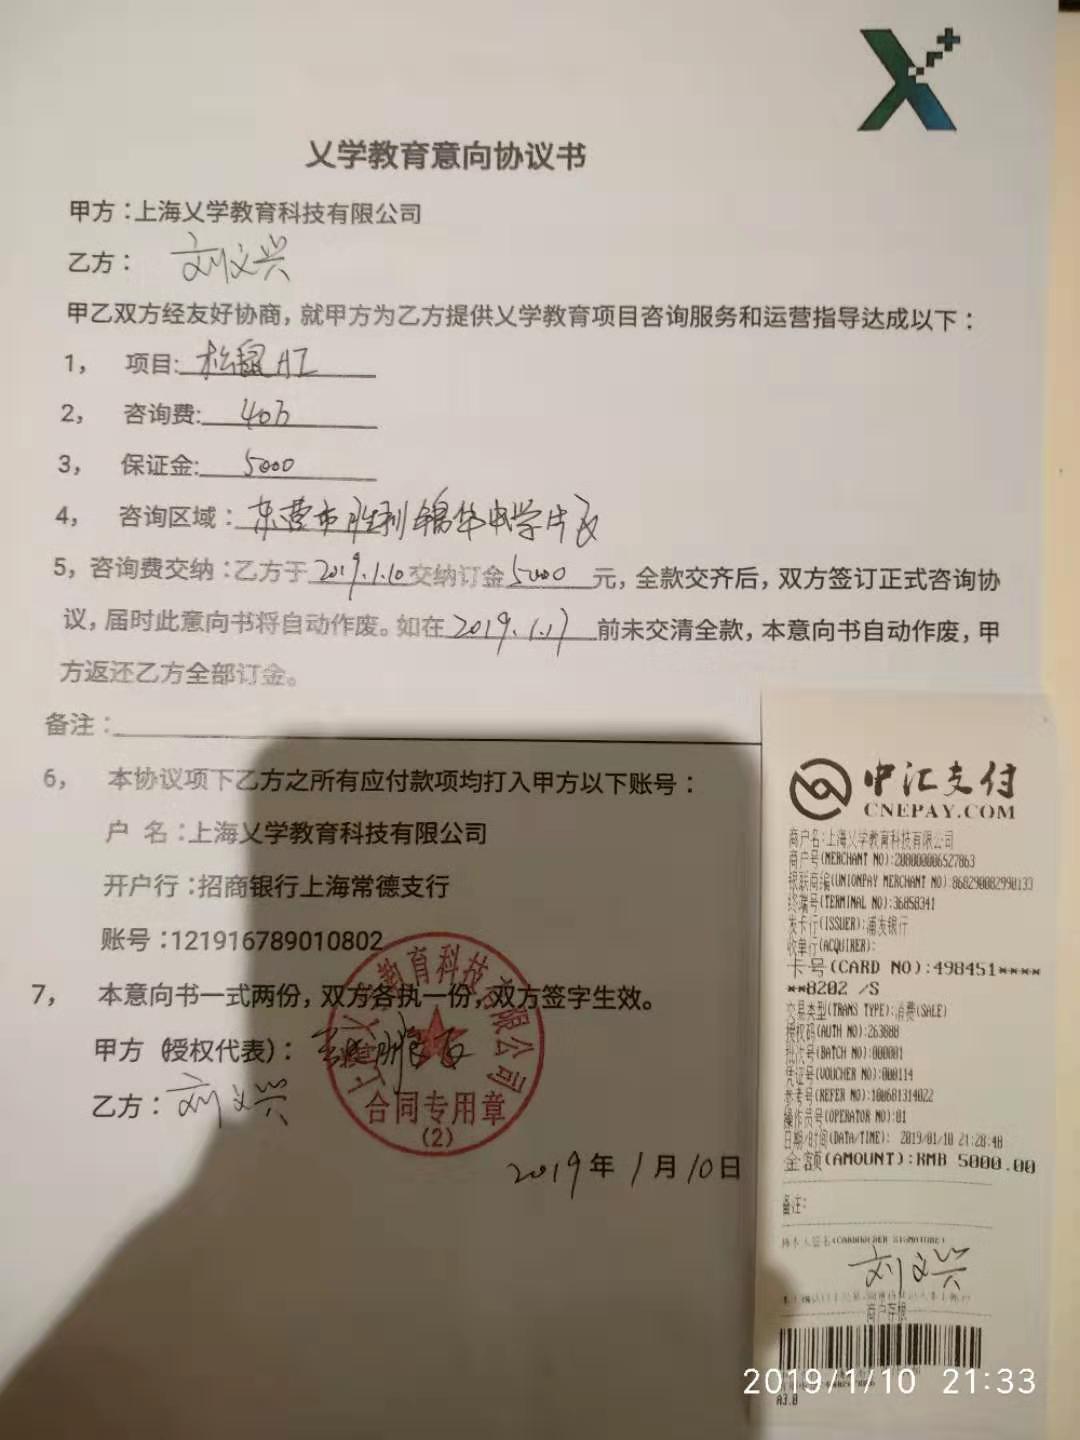 乂学教育意向协议书
甲方：上海乂学教育科技有限公司
乙方： 刘文兴
甲乙双方经友好协商，就甲方为乙方提供乂学教育项目咨询服务和运营指导达成以下：
1， 项目: 松鼠AI
2， 咨询费: 40万
3， 保证金: 5000
4， 咨询区域： 东营市胜利锦华中学片区
5，咨询费交纳：乙方于 2019.1.10 交纳订金 5000 元，全款交齐后，双方签订正式咨询协
议，届时此意向书将自动作废。如在 2019.1.17 前未交清全款，本意向书自动作废，甲
方返还乙方全部订金。
备注：
6， 本协议项下乙方之所有应付款项均打入甲方以下账号：
户 名：上海乂学教育科技有限公司
开户行：招商银行上海常德支行
账号：121916789010802
7， 本意向书一式两份，双方各执一份，双方签字生效。
甲方（授权代表）：
乙方： 刘文兴
上海乂学教育科技有限公司
合同专用章
(2)
2019年1月10日
中汇支付
CNEPAY.COM
商户名:上海乂学教育科技有限公司
商户号(MERCHANT NO):208000006527863
银联商编(UNIONPAY MERCHANT NO):868290082990133
终端号(TERMINAL NO):36858341
发卡行(ISSUER):浦发银行
收单行(ACQUIRER):
卡号(CARD NO):498451****
**8202 /S
交易类型(TRANS TYPE):消费(SALE)
授权码(AUTH NO):263888
批次号(BATCH NO):000001
凭证号(VOUCHER NO):000114
参考号(REFER NO):100681314022
操作员号(OPERATOR NO):01
日期/时间(DATA/TIME): 2019/01/10 21:28:48
金额(AMOUNT):RMB 5000.00
备注:
持卡人签名(CARDHOLDER SIGNATURE)
刘文兴
商户存根
A3.0
2019/1/10 21:33